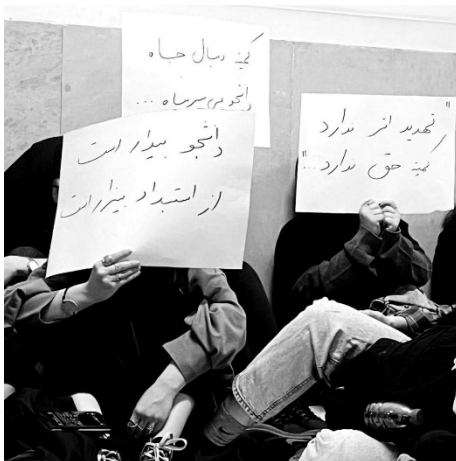 کمیته دنبال جاه
دانشجو می‌سپرد راه ...
دانشجو بیدار است
از استبداد بیزار است
"تهدید اثر ندارد
کمیته حق ندارد..."